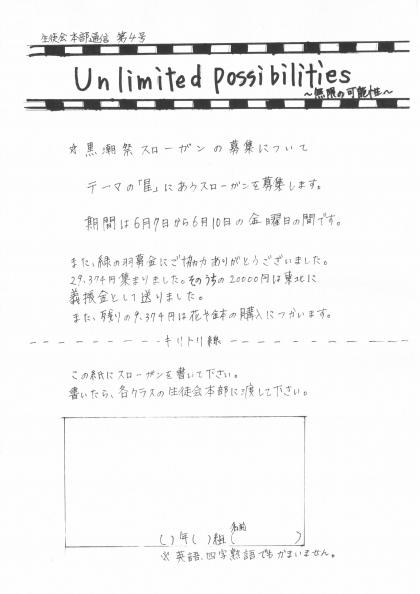 生徒会本部通信 第4号
Unlimited possibilities
～無限の可能性～
☆黒潮祭スローガンの募集について
テーマの「星」にあうスローガンを募集します。
期間は6月7日から6月10日の金曜日の間です。
また、緑の羽募金にご協力ありがとうございました。
29,374円集まりました。そのうちの20000円は東北に
義援金として送りました。
また、残りの9,374円は花や金本の購入につかいます。
キリトリ線
この紙にスローガンを書いて下さい。
書いたら、各クラスの生徒会本部に渡して下さい。
名前
( )年( )組( )
※英語、四字熟語でもかまいません。